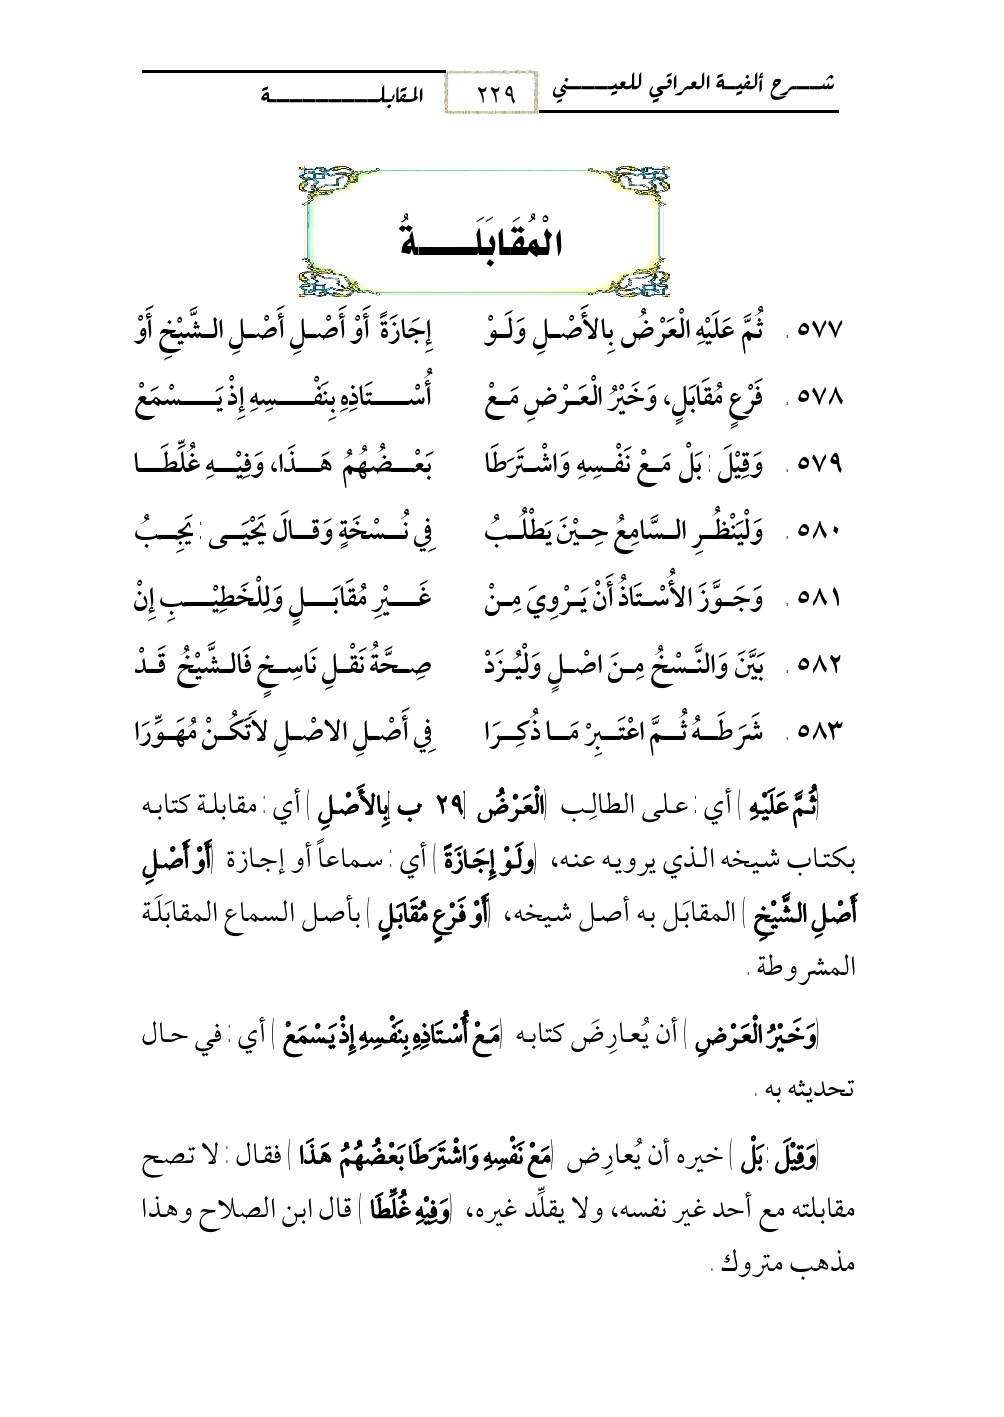 شــــرح ألفيـة العراقي للعيـــــني ٢٢٩ المقابلـــــــــــة
الْمُقَابَلَـــــةُ
٥٧٧ . ثُمَّ عَلَيْهِ الْعَرْضُ بِالأَصْـلِ وَلَـوْ إِجَازَةً أَوْ أَصْـلِ أَصْلِ الـشَّيْخِ أَوْ
٥٧٨ . فَرْعٍ مُقَابَلٍ، وَخَيْرُ الْعَـرْضِ مَـعْ أُسْـــتَاذِهِ بِنَفْـــسِهِ إِذْ يَـــسْمَعْ
٥٧٩ . وَقِيْلَ : بَلْ مَـعْ نَفْـسِهِ وَاشْـتَرَطَا بَعْـــضُهُمُ هَـــذَا، وَفِيْـــهِ غُلِّطَـــا
٥٨٠ . وَلْيَنْظُـرِ الـسَّامِعُ حِـيْنَ يَطْلُـبُ فِي نُـسْخَةٍ وَقَـالَ يَحْيَـى : يَجِـبُ
٥٨١ . وَجَـوَّزَ الأُسْـتَاذُ أَنْ يَـرْوِيَ مِـنْ غَـــيْرِ مُقَابَـــلٍ وَلِلْخَطِيْـــبِ إِنْ
٥٨٢ . بَيَّنَ وَالنَّسْخُ مِـنَ اصْـلٍ وَلْيُـزَدْ صِـحَّةُ نَقْـلِ نَاسِـخٍ فَالـشَّيْخُ قَـدْ
٥٨٣ . شَرَطَـهُ ثُـمَّ اعْتَـبِرْ مَـا ذُكِـرَا فِي أَصْـلِ الاصْـلِ لاَتَكُـنْ مُهَـوِّرَا
(ثُمَّ عَلَيْهِ) أي : على الطالِب (الْعَرْضُ [٢٩ ب] بِالأَصْـلِ) أي : مقابلة كتابه
بكتاب شيخه الذي يرويه عنه، (ولَوْ إِجَازَةً) أي : سماعاً أو إجازة (أَوْ أَصْلِ
أَصْلِ الشَّيْخِ) المقابَل به أصل شيخه، (أَوْ فَرْعٍ مُقَابَلٍ) بأصل السماع المقابَلَة
المشروطة .
(وَخَيْرُ الْعَرْضِ) أن يُعارِضَ كتابه (مَعْ أُسْتَاذِهِ بِنَفْسِهِ إِذْ يَسْمَعْ) أي : في حال
تحديثه به .
(وَقِيْلَ : بَلْ) خيره أن يُعارِض (مَعْ نَفْسِهِ وَاشْتَرَطَا بَعْضُهُمُ هَذَا) فقال : لا تصح
مقابلته مع أحد غير نفسه، ولا يقلِّد غيره، (وَفِيْهِ غُلِّطَا) قال ابن الصلاح وهذا
مذهب متروك .